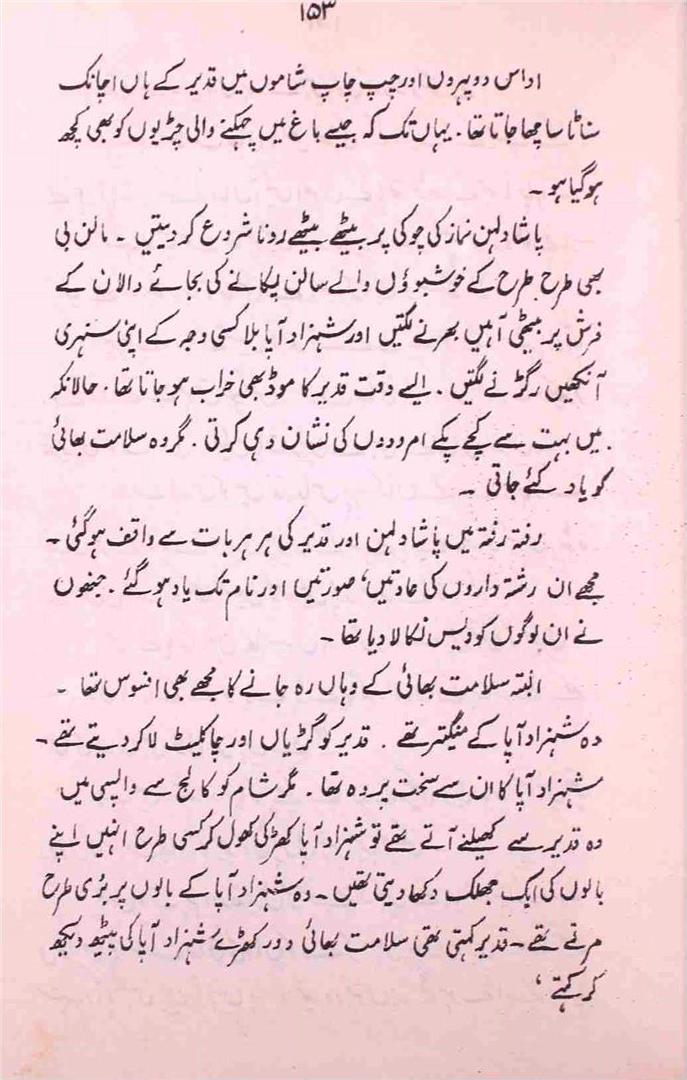 ۱۵۳
اداس دوپہروں اور چپ چاپ شاموں میں قدیر کے ہاں اچانک
سناٹا سا چھا جاتا تھا۔ یہاں تک کہ جیسے باغ میں چہکنے والی چڑیوں کو بھی کچھ
ہو گیا ہو۔
پاشا دلہن نماز کی چوکی پر بیٹھے بیٹھے رونا شروع کر دیتیں۔ مالن بی
بھی طرح طرح کے خوشبوؤں والے سالن پکانے کی بجائے دالان کے
فرش پر بیٹھی آہیں بھرنے لگتیں اور شہزاد آپا بلا کسی وجہ کے اپنی سنہری
آنکھیں رگڑنے لگتیں۔ ایسے وقت قدیر کا موڈ بھی خراب ہو جاتا تھا۔ حالانکہ
میں بہت سے کچے پکے امرودوں کی نشان دہی کرتی۔ مگر وہ سلامت بھائی
کو یاد کئے جاتی۔
رفتہ رفتہ میں پاشا دلہن اور قدیر کی ہر ہر بات سے واقف ہو گئی۔
مجھے ان رشتہ داروں کی عادتیں، صورتیں اور نام تک یاد ہو گئے۔ جنھوں
نے ان لوگوں کو دیس نکالا دیا تھا۔
البتہ سلامت بھائی کے وہاں رہ جانے کا مجھے بھی افسوس تھا۔
وہ شہزاد آپا کے منگیتر تھے۔ قدیر کو گڑیاں اور چاکلیٹ لا کر دیتے تھے۔
شہزاد آپا کا ان سے سخت پردہ تھا۔ مگر شام کو کالج سے واپسی میں
وہ قدیر سے کھیلنے آتے تھے تو شہزاد آپا کھڑکی کھول کر کسی طرح انہیں اپنے
بالوں کی ایک جھلک دکھا دیتی تھیں۔ وہ شہزاد آپا کے بالوں پر بُری طرح
مرتے تھے۔ قدیر کہتی تھی سلامت بھائی دور کھڑے شہزاد آپا کی پیٹھ دیکھ
کر کہتے‘